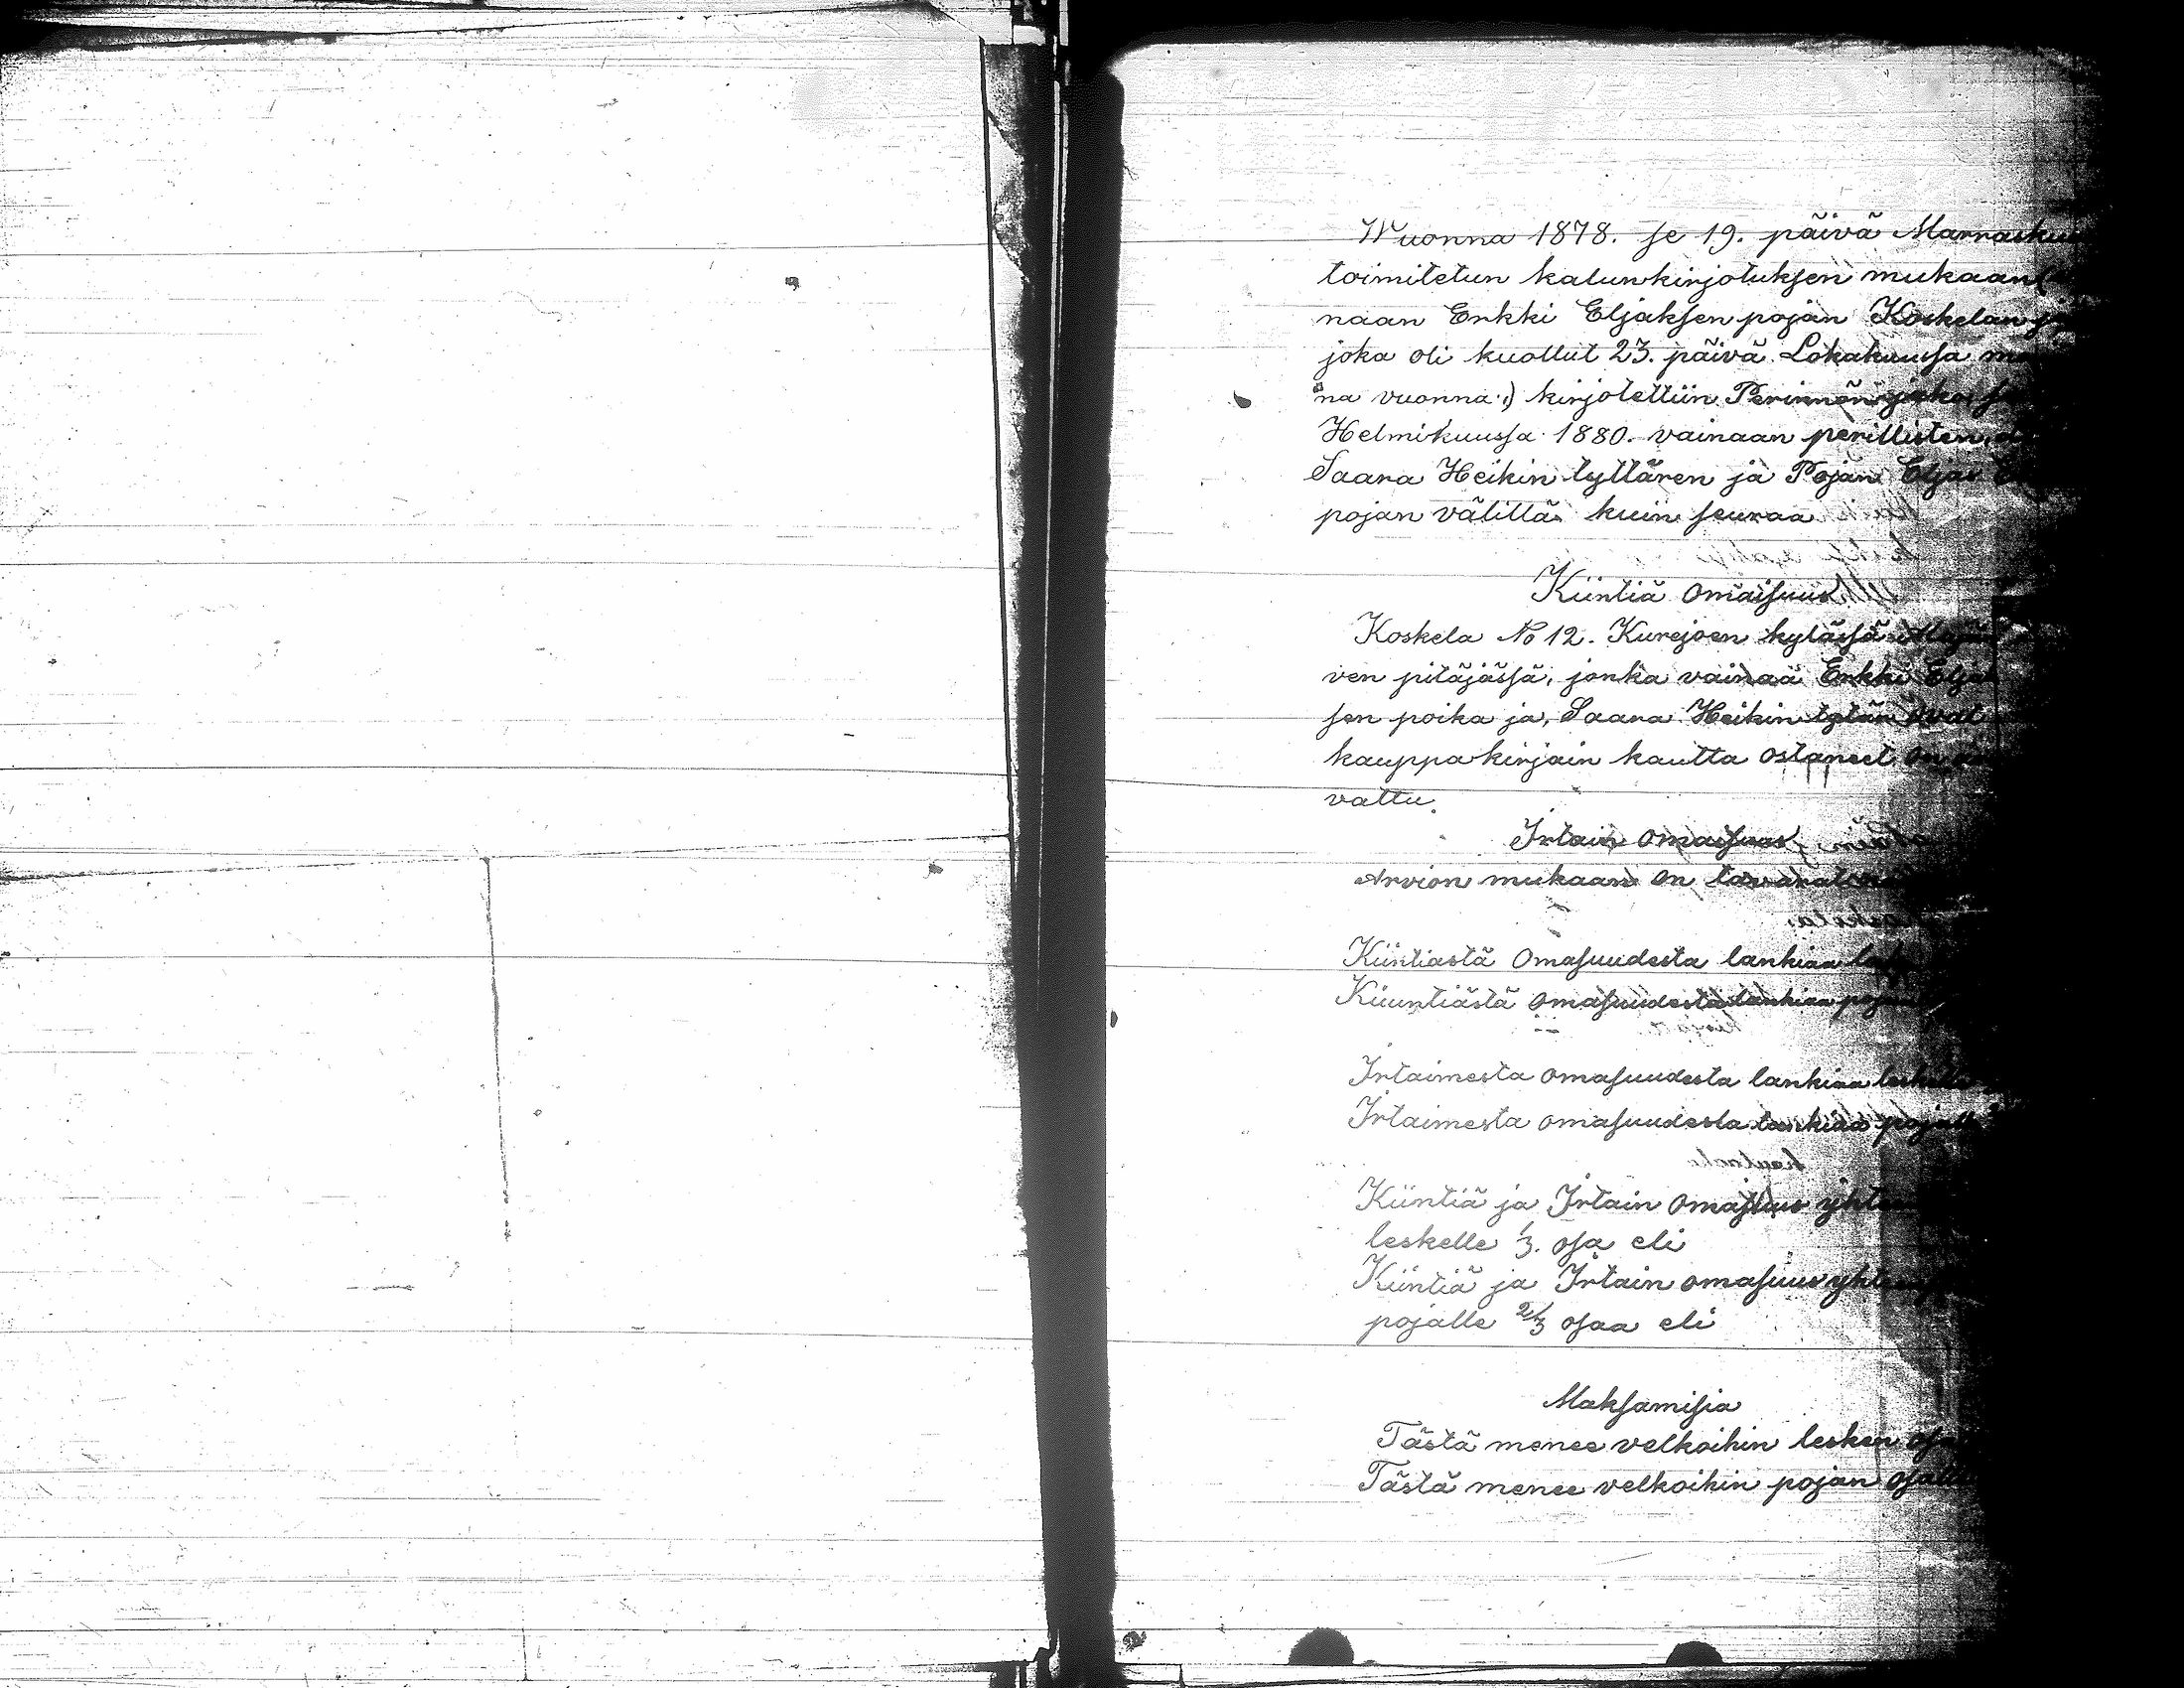 Wuonna 1878. se 19. päivä Marraskuu
toimitetun kalunkirjotuksen mukaan
naan Erkki Eljaksen pojan Koskelan
joka oli kuollut 23. päivä Lokakuusa
na vuonna:) kirjotettiin Perinnön jako
Helmikuussa 1880. vainaan perillisten
Saara Heikin tyttären ja Pojan Eljas
pojan välillä kuin seuraa
Kiintiä omaisuus
Koskela No 12. Kurejoen kylässä Alajär
ven pitäjässä, jonka vainaa Erkki Eljak
sen poika ja, Saara Heikin tytär ovat
kauppakirjain kautta ostaneet on
vattu.
Irtain omaisuus
Arvion mukaan on tavarat
Kiintiastä Omasuudesta lankiaa
Kiuuntiästä omasuudesta lankiaa pojan
Irtaimesta omasuudesta lankiaa leskelle
Irtaimesta omasuudesta lankiaa pojalle
Kiintiä ja Irtain omasuus
leskelle 1/3. osa eli
Kiintiä ja Irtain omasuus
pojalle 2/3 osaa eli
Maksamisia
Tästä menee velkoihin lesken
Tästä menee velkoihin pojan osalle